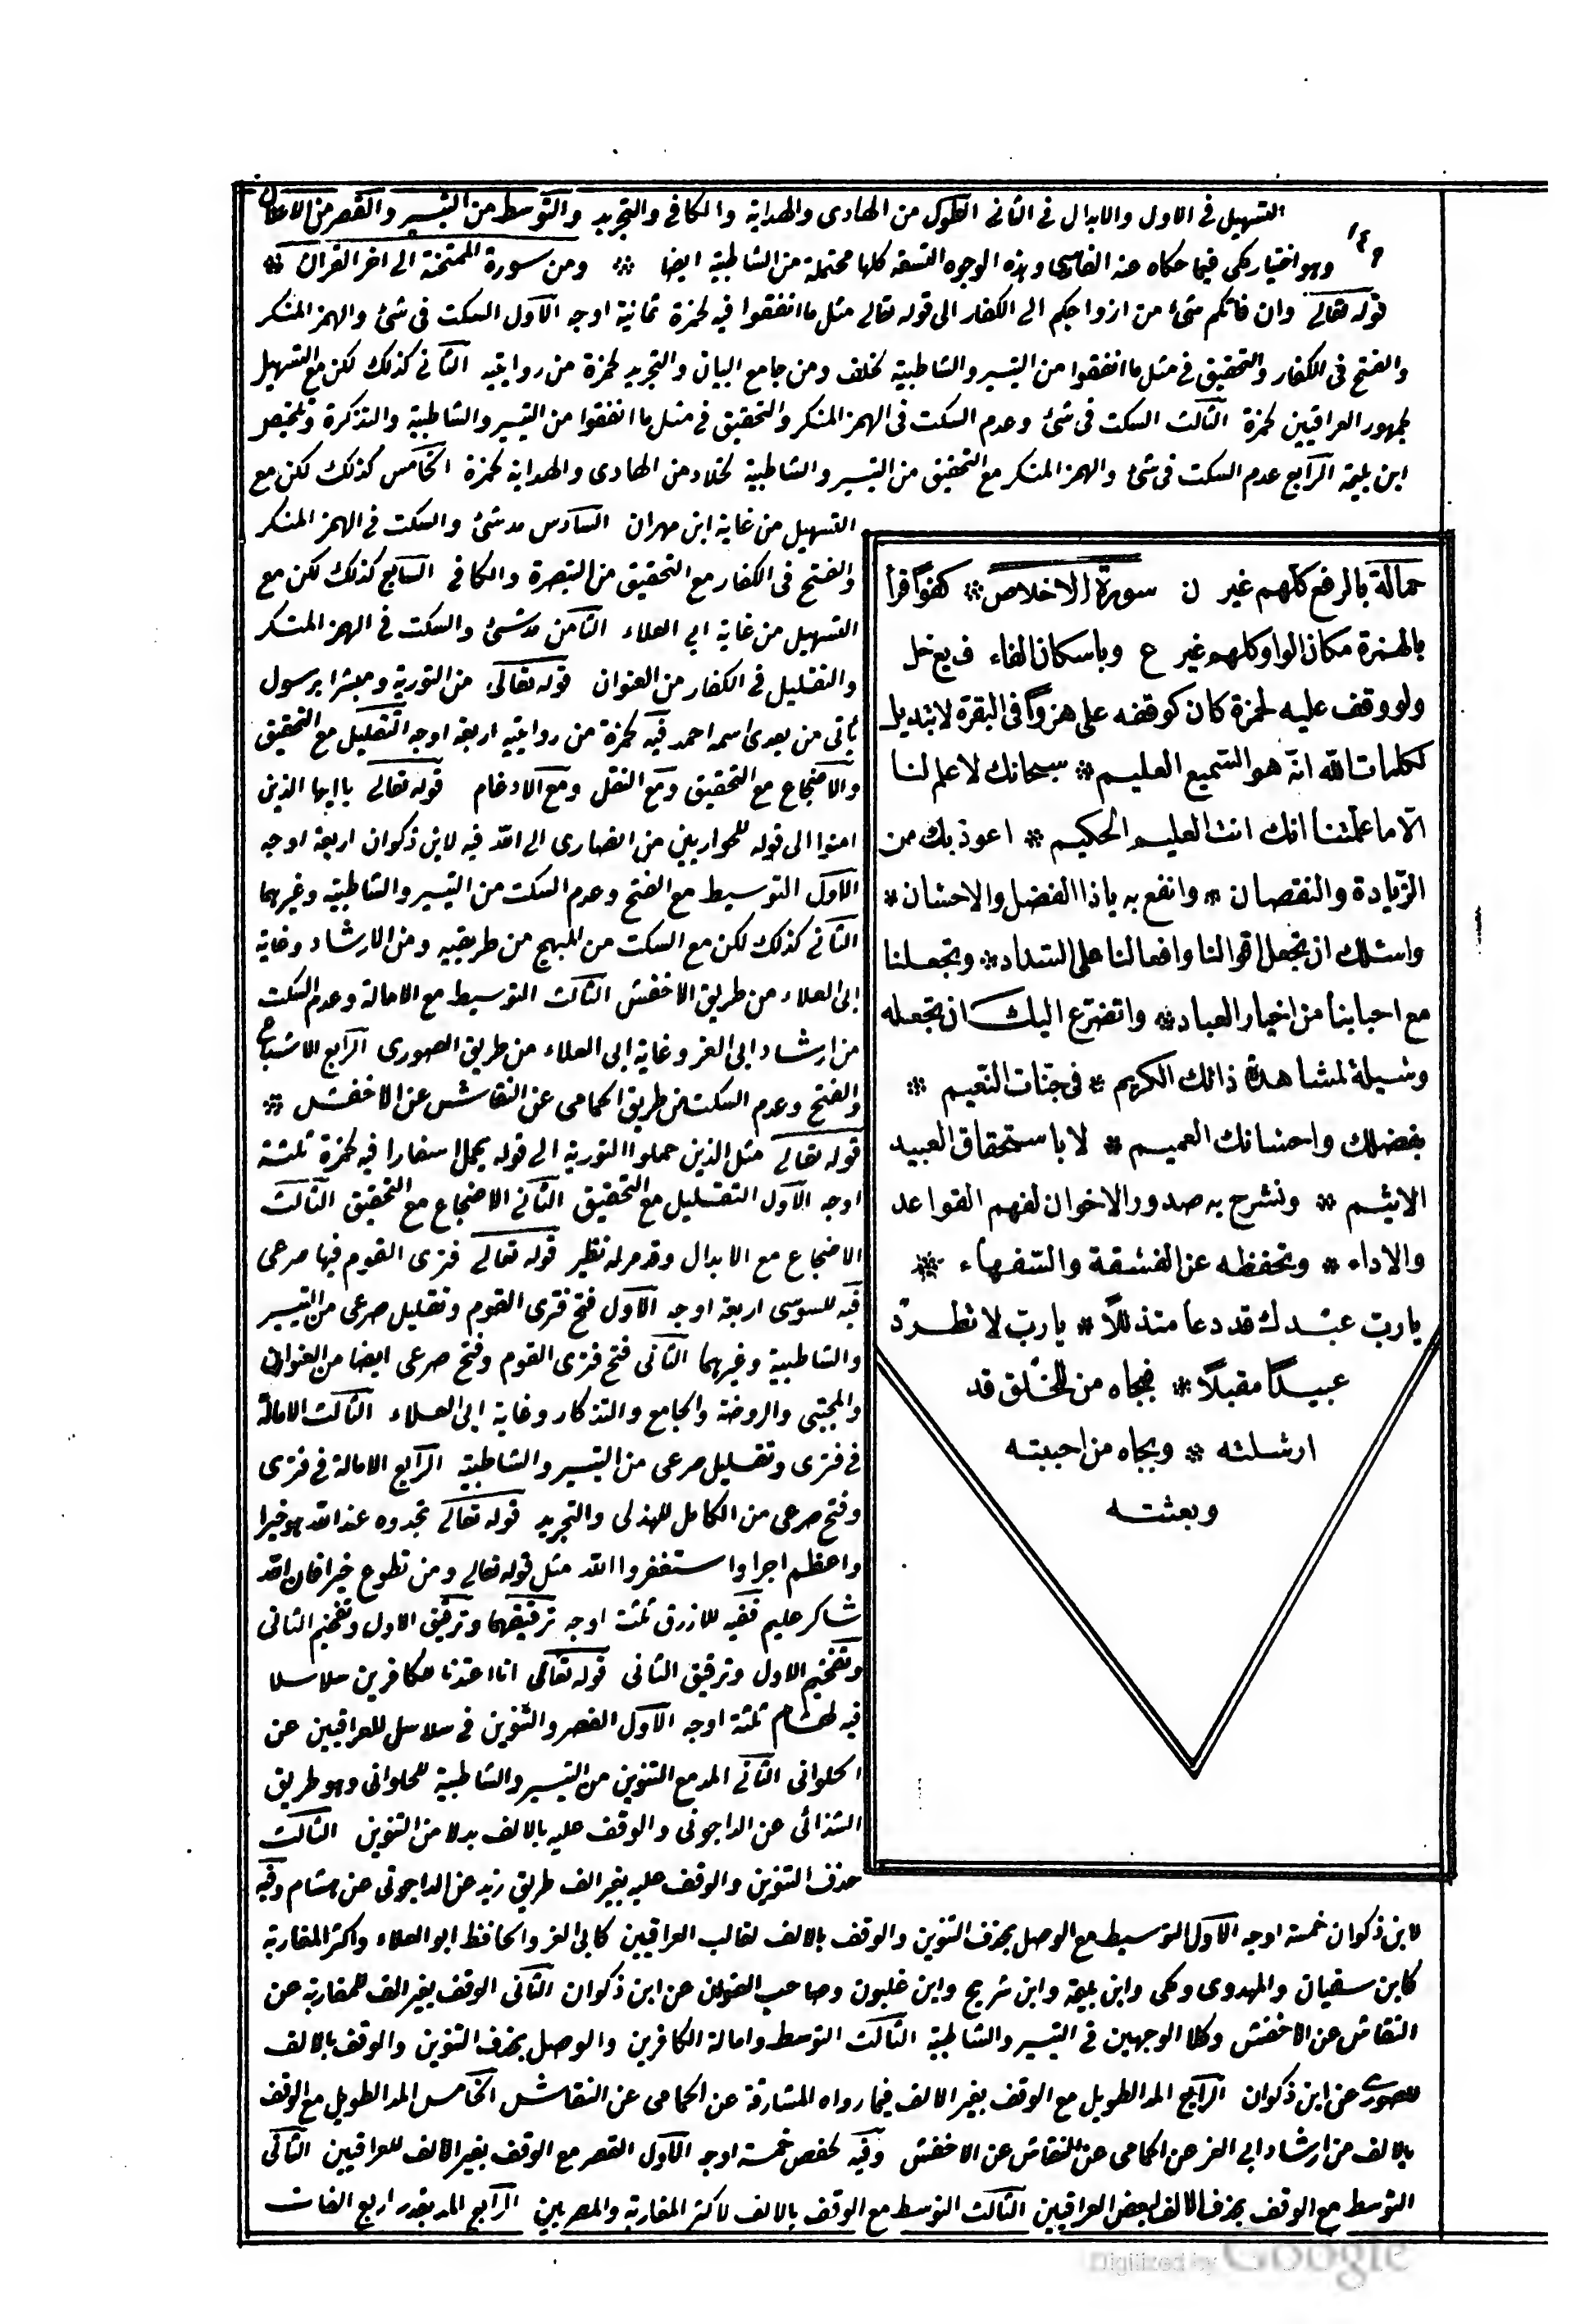 التسهيل فى الاول والابدال فى الثانى الطول من الهادى والهداية والكافى والتجريد والتوسط من التيسير والقصر من الاعلان
وهو اختيار مكى فيما حكاه عنه الفارسى وهذه الوجوه التسعة كلها محتملة من الشاطبية ايضا * ومن سورة الممتحنة الى اخر القران *
قوله تعالى وان فاتكم شئ من ازواجكم الى الكفار الى قوله تعالى مثل ما انفقوا فيه لحمزة ثمانية اوجه الاول السكت فى شئ والهمز المنكر
والفتح فى الكفار والتحقيق فى مثل ما انفقوا من التيسير والشاطبية لخلف ومن جامع البيان والتجريد لحمزة من روايتيه الثانى كذلك لكن مع التسهيل
لجمهور العراقيين لحمزة الثالث السكت فى شئ وعدم السكت فى الهمز المنكر والتحقيق فى مثل ما انفقوا من التيسير والشاطبية والتذكرة وتلخيص
ابن بليمة الرابع عدم السكت فى شئ والهمز المنكر مع التحقيق من التيسير والشاطبية لخلاد من الهادى والهداية لحمزة الخامس كذلك لكن مع
التسهيل من غاية ابن مهران السادس مد شئ والسكت فى الهمز المنكر
والفتح فى الكفار مع التحقيق من التبصرة والكافى السابع كذلك لكن مع
التسهيل من غاية ابى العلاء الثامن مد شئ والسكت فى الهمز المنكر
والتقليل فى الكفار من العنوان قوله تعالى من التورية ومبشرا برسول
ياتى من بعدى اسمه احمد فيه لحمزة من روايتيه اربعة اوجه التقليل مع التحقيق
والاضجاع مع التحقيق ومع النقل ومع الادغام قوله تعالى ياايها الذين
امنوا الى قوله للحواريين من انصارى الى الله فيه لابن ذكوان اربعة اوجه
الاول التوسيط مع الفتح وعدم السكت من التيسير والشاطبية وغيرهما
الثانى كذلك لكن مع السكت من المبهج من طريقيه ومن الارشاد وغاية
ابى العلاء من طريق الاخفش الثالث التوسيط مع الامالة وعدم السكت
من ارشاد ابى العز وغاية ابى العلاء من طريق الصورى الرابع الاشباع
والفتح وعدم السكت من طريق الحمامى عن النقاش عن الاخفش *
قوله تعالى مثل الذين حملوا التورية الى قوله يحمل اسفارا فيه لحمزة ثلثة
اوجه الاول التقليل مع التحقيق الثانى الاضجاع مع التحقيق الثالث
الاضجاع مع الابدال وقد مر له نظير قوله تعالى فترى القوم فيها صرعى
فيه للسوسى اربعة اوجه الاول فتح فترى القوم وتقليل صرعى من التيسير
والشاطبية وغيرهما الثانى فتح فترى القوم وفتح صرعى ايضا من العنوان
والمجتبى والروضة والجامع والتذكار وغاية ابى العلاء الثالث الامالة
فى فترى وتقليل صرعى من التيسير والشاطبية الرابع الامالة فى فترى
وفتح صرعى من الكامل للهذلى والتجريد قوله تعالى تجدوه عند الله هو خيرا
واعظم اجرا واستغفروا الله مثل قوله تعالى ومن تطوع خيرا فان الله
شاكر عليم ففيه للازرق ثلثة اوجه ترقيقهما وترقيق الاول وتفخيم الثانى
وتفخيم الاول وترقيق الثانى قوله تعالى انا اعتدنا للكافرين سلاسلا
فيه لهشام ثلثة اوجه الاول القصر والتنوين فى سلاسل للعراقيين عن
الحلوانى الثانى المد مع التنوين من التيسير والشاطبية للحلوانى وهو طريق
الشذائى عن الداجونى والوقف عليه بالالف بدلا من التنوين الثالث
حذف التنوين والوقف عليه بغير الف طريق زيد عن الداجونى عن هشام وفيه
لابن ذكوان خمسة اوجه الاول التوسيط مع الوصل بحذف التنوين والوقف بالالف لغالب العراقيين كابى العز والحافظ ابو العلاء واكثر المغاربة
كابن سفيان والمهدوى ومكى وابن بليمة وابن شريح وابن غلبون وصاحب العنوان عن ابن ذكوان الثانى الوقف بغير الف للمغاربة عن
النقاش عن الاخفش وكلا الوجهين فى التيسير والشاطبية الثالث التوسط وامالة الكافرين والوصل بحذف التنوين والوقف بالالف
للصورى عن ابن ذكوان الرابع المد الطويل مع الوقف بغير الالف فيما رواه المشارقة عن الحمامى عن النقاش الخامس المد الطويل مع الوقف
بالالف من ارشاد ابى العز عن الحمامى عن النقاش عن الاخفش وفيه لحفص خمسة اوجه الاول القصر مع الوقف بغير الالف للعراقيين الثانى
التوسط مع الوقف بحذف الالف لبعض العراقيين الثالث التوسط مع الوقف بالالف لاكثر المغاربة والمصريين الرابع المد بقدر اربع الفات
حمالة بالرفع كلهم غير ن سورة الاخلاص * كفوا قرأ
بالهمزة مكان الواو كلهم غير ع وباسكان الفاء ف يع خل
ولو وقف عليه لحمزة كان كوقفه على هزوا فى البقرة لا تبديل
لكلمات الله انه هو السميع العليم * سبحانك لا علم لنا
الا ما علمتنا انك انت العليم الحكيم * اعوذ بك من
الزيادة والنقصان * وانفع به ياذا الفضل والاحسان *
واسئلك ان تجعل اقوالنا وافعالنا على السداد * وتجعلنا
مع احبابنا من اخيار العباد * واتضرع اليك ان تجعله
وسيلة لمشاهدة ذاتك الكريم * فى جنات النعيم *
بفضلك واحسانك العميم * لا باستحقاق العبيد
الاثيم * وتشرح به صدور الاخوان لفهم القواعد
والاداء * وتحفظه عن الفسقة والسفهاء *
يارب عبدك قد دعا متذللا * يارب لا تطرد
عبيدا مقبلا * بجاه من للخلق قد
ارسلته * وبجاه من احببته
وبعثته
Digitized by Google